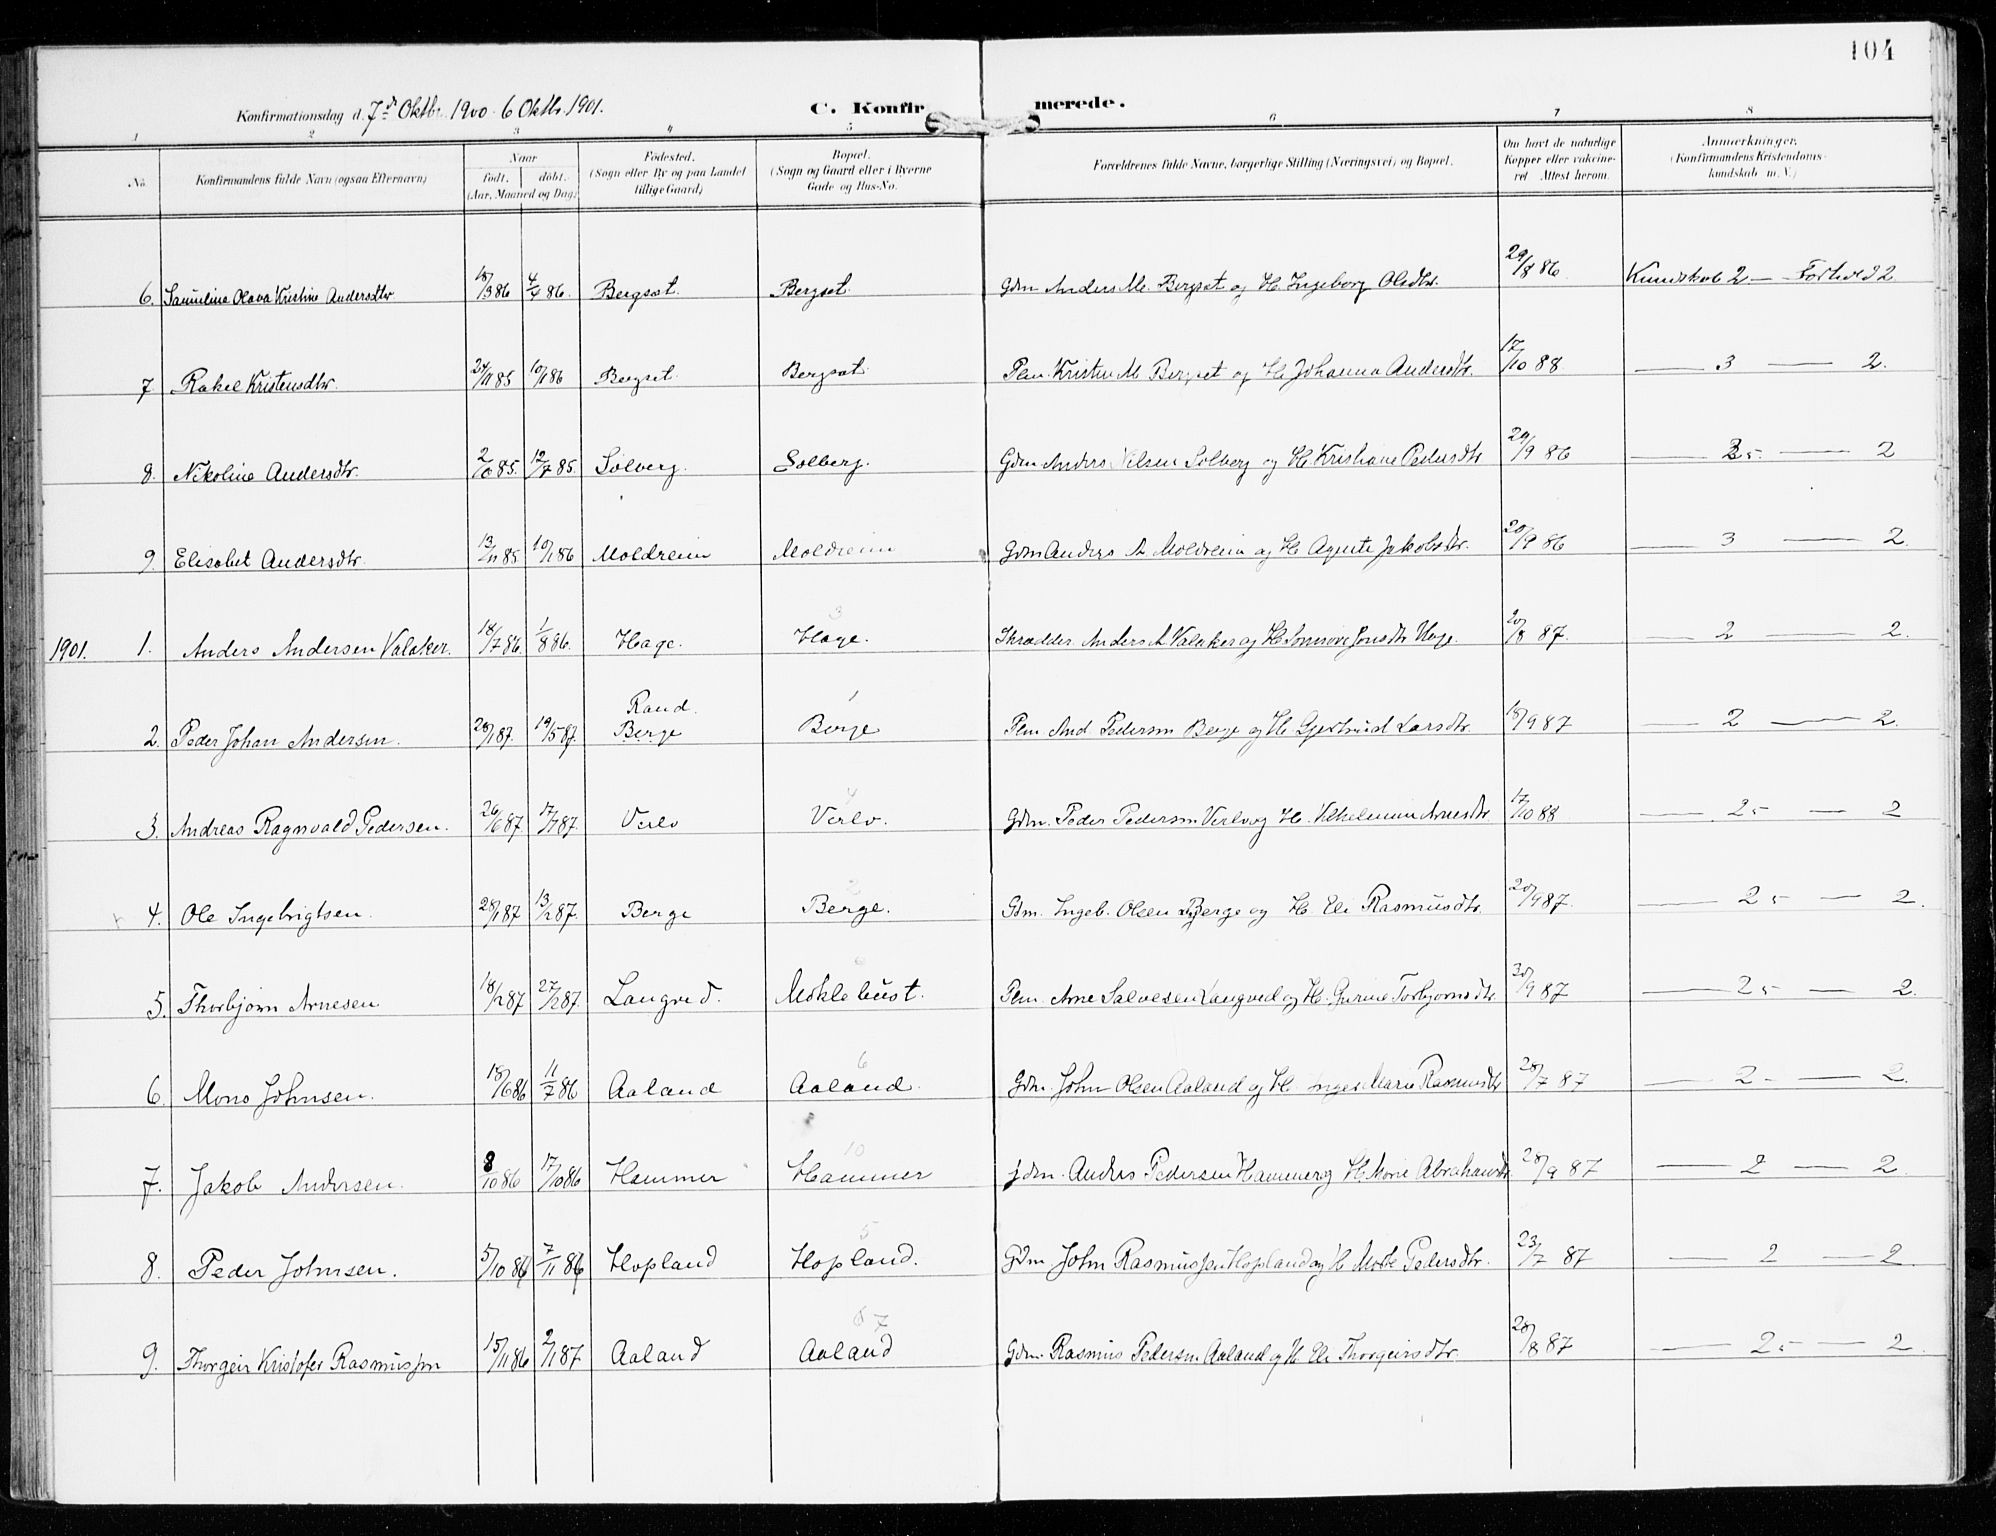 104
Konfirmationsdag d. 7de Oktbr. 1900 - 6 Oktbr. 1901. C. Konfirmerede.
1 2 3 4 5 6 7 8
No. Konfirmandens fulde Navn (ogsaa Efternavn) Naar født. døbt. (Aar, Maaned og Dag) Fødested. (Sogn eller By og paa Landet tillige Gaard) Bopæl. (Sogn og Gaard eller i Byerne Gade og Hus-No. Forældrenes fulde Navne, borgerlige Stilling (Næringsvei) og Bopæl. Om havt de naturlige Kopper eller vakcineret Attest herom. Anmærkninger. (Konfirmandens Kristendomskundskab m. V.)
6. Samuline Olava Kristine Andersdtr 18/3 86 4/4 86. Bergsat. Bergsat. Gdm Anders M. Bergsat og H. Ingeborg Olsdtr. 29/8 86. Kundskab 2 — Forhold 2
7 Rakel Kristensdtr. 24/11 85 10/1 86 Bergset. Bergsat. Plm. Kristen M. Bergset og H. Johanna Andersdtr. 17/10 88 — 3 — 2.
8. Nikoline Andersdtr. 2/6 85. 12/7 85. Solberg. Solberg. Gdm Anders Nilsen Solberg og H. Kristiane Pedersdtr 29/9 86 — 2 — 2
9. Elisabet Andersdtr. 13/11 85 10/1 86 Moldreim Moldreim Gdm Anders A Moldreim og H. Agnete Jakobsdtr. 20/9 86 — 3 — 2.
3
1901. 1. Anders Andersen Valaker. 18/7 86. 1/8 86. Hage. Hage. Skrædder Anders A Valaker og H. Jonsdtr Hage. 20/8 87. — 2 — 2.
Rand. 1
2. Peder Johan Andersen. 28/1 87. 19/5 87. Berge Berge Plm. And. Pedersen Berge og H. Gjertrud Larsdtr. 18/9 87 — 2 — 2.
4
3. Andreas Ragnvald Pedersen. 26/6 87. 17/7 87. Verlo Verlo. Gdm. Peder Pedersen Verlo og H. Vilhelmine Arnesdtr. 17/10 88 — 2- — 2
2
4. Ole Ingebrigtsen. 28/1 87 13/2 87. Berge Berge. Gdm. Ingeb. Olsen Berge og H. Eli Rasmusdtr. 20/9 87. — 2- — 2.
5. Thorbjørn Arnesen 18/1 87 27/2 87. Langved. Møklebust. Plm. Arne Salvesen Langved og H. Gurine Torbjørnsdtr. 30/9 87 — 2- — 2.
6
6. Mons Johnsen. 18/6 86 11/7 86 Aaland Aaland. Gdm. John Olsen Aaland og H. Inger Marie Rasmusdtr 28/7 87 — 2- — 2.
10
7. Jakob Andersen. 8/10 86 17/10 86 Hammer Hammer Gdm. Anders Pedersen Hammer og H. Marie Abrahamsdtr. 28/9 87 — 2 — 2.
5
8. Peder Johnsen. 5/10 86 7/11 86 Hopland Hopland. Gdm John Rasmussen Hopland og H. Pedersdtr. 23/7 87 — 2 — 2.
8 7
9. Thorgeir Kristofer Rasmussen 15/11 86 2/1 87 Aaland Aaland Gdm. Rasmus Pedersen Aaland og H. Eli Thorgeirsdtr. 28/8 87 — 2- — 2.